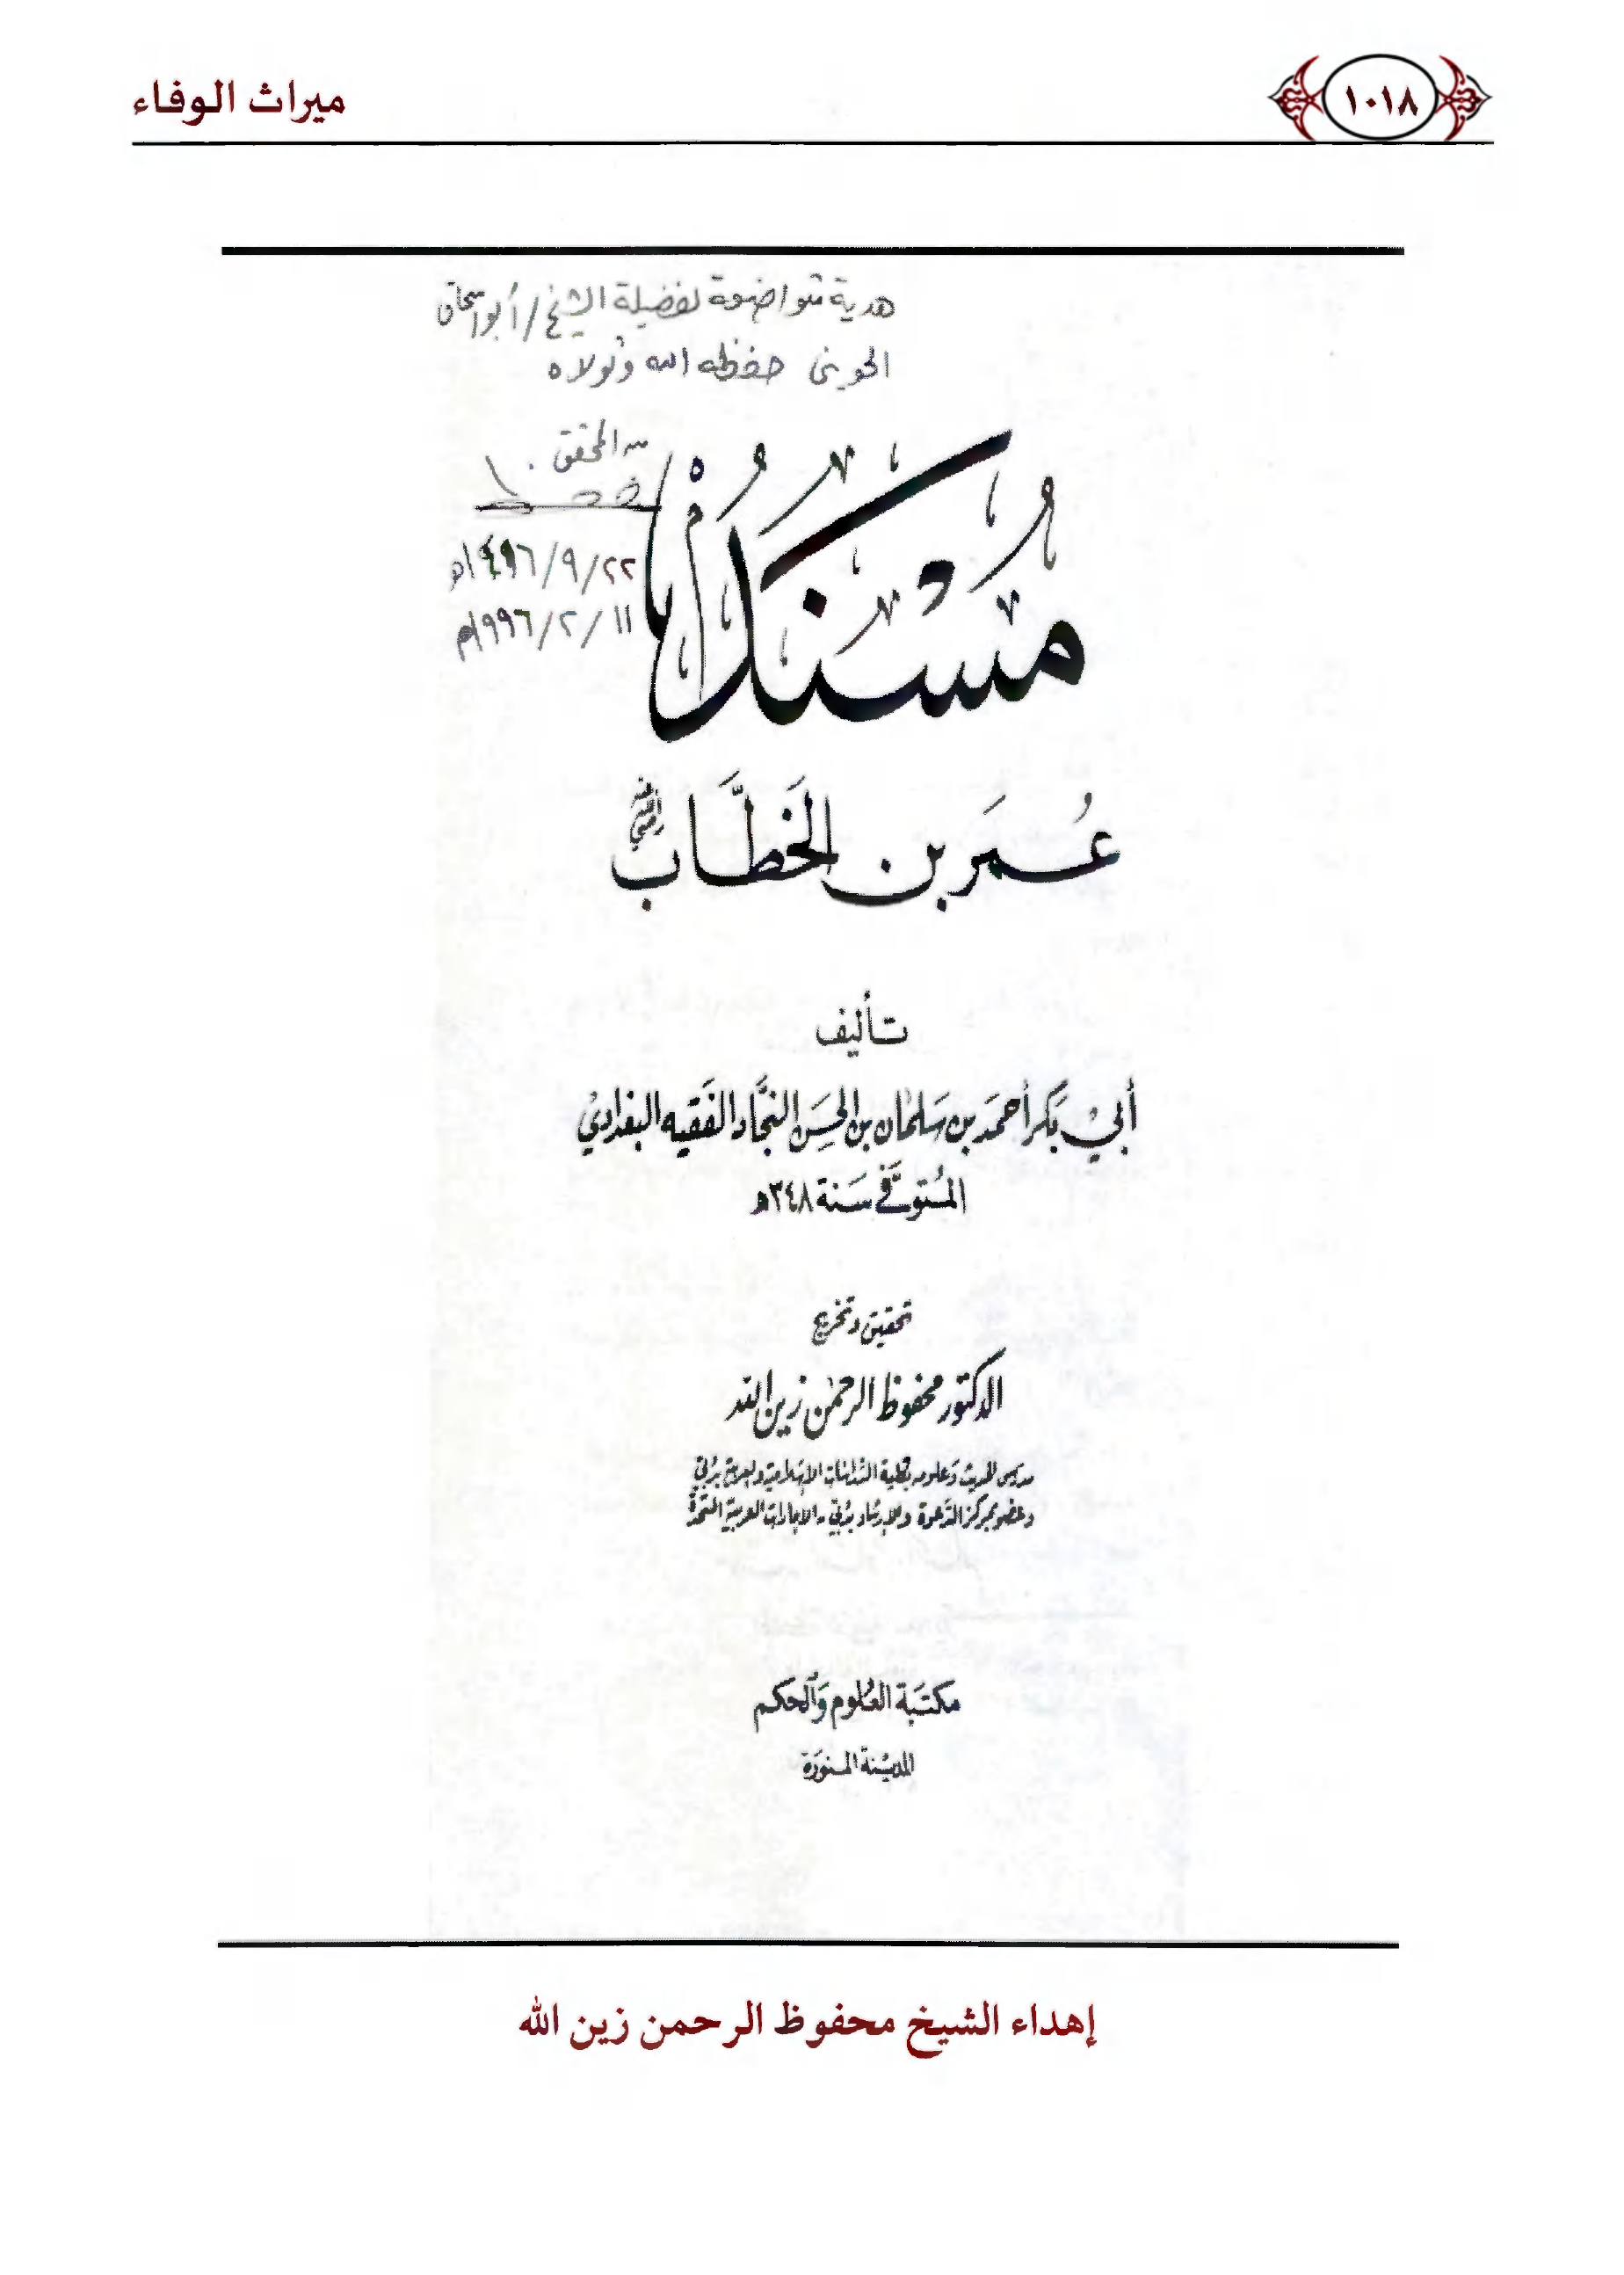 ١٠١٨
ميراث الوفاء
هدية متواضعة لفضيلة الشيخ / أبو اسحاق
الحويني حفظه الله وتولاه
من المحقق
٢٢/٩/١٤١٦هـ
١١/٢/١٩٩٦م
مُسْنَدُ
عُمَر بن الخَطَّاب رضي الله عنه
تأليف
أبي بَكر أحمَد بن سَلمَان بن الحسَن النجَّاد الفَقيه البغدادي
المُتوفَّى سَنة ٣٤٨هـ
تحقيق وتخريج
الدكتور محفوظ الرحمن زين الله
مدرس الحديث وعلومه بكلية الدراسات الإسلامية والعربية بدبي
وعضو بمركز الدعوة والإرشاد بدبي - الإمارات العربية المتحدة
مكتَبة العُلوم وَالحكم
المدينَة المنورَة
إهداء الشيخ محفوظ الرحمن زين الله